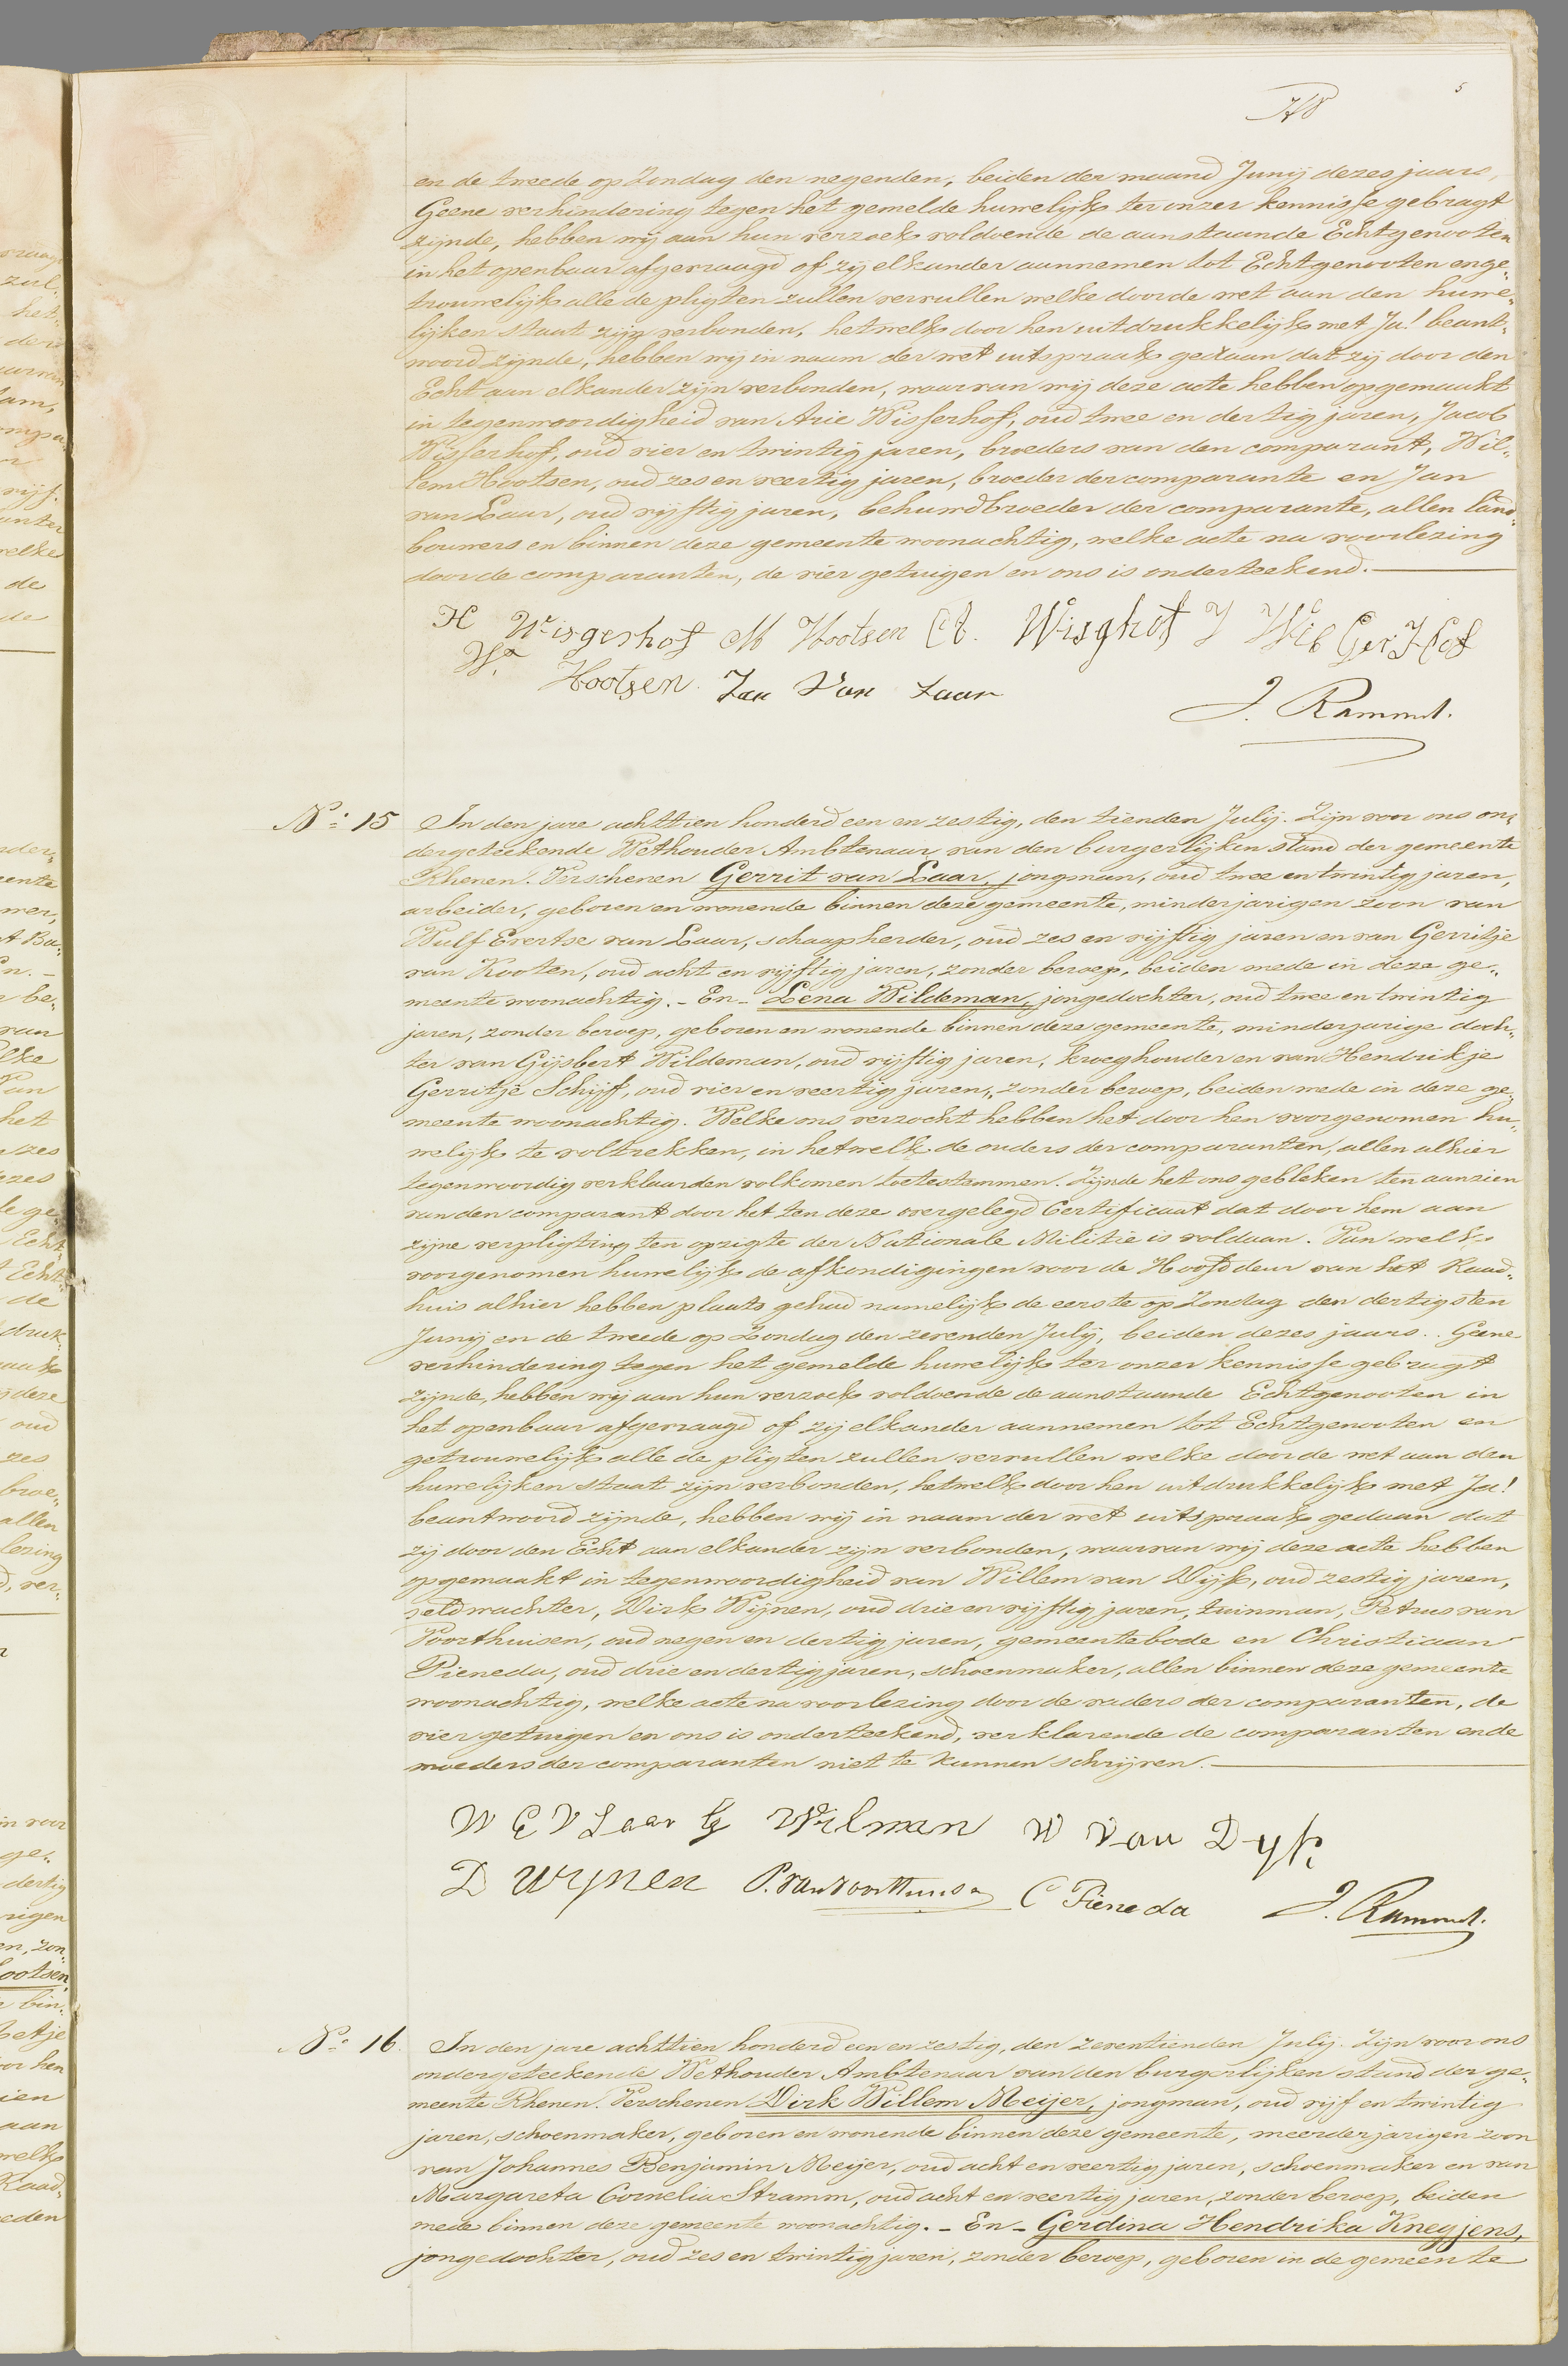 5
en de tweede op Zondag den negenden, beiden der maand Junij dezes jaars,
Geene verhindering tegen het gemelde huwelijk ter onzer kennisse gebragt
zijnde, hebben wij aan hun verzoek voldoende de aanstaande Echtgenooten
in het openbaar afgevraagd of zij elkander aannemen tot Echtgenooten en ge„
trouwelijk alle de pligten zullen vervullen welke door de wet aan den huwe„
lijken staat zijn verbonden, hetwelk door hen uitdrukkelijk met Ja! beant„
woord zijnde, hebben wij in naam der wet uitspraak gedaan dat zij door den
Echt aan elkander zijn verbonden, waarvan wij deze acte hebben opgemaakt
in tegenwoordigheid van Arie Wisferhof, oud twee en dertig jaren, Jacob
Wisferhof, oud vier en twintig jaren, broeders van den comparant, Wil„
lem Hootsen, oud zes en veertig jaren, broeder der comparante en Jan
van Laar, oud vijftig jaren, behuwdbroeder der comparante, allen land„
bouwers en binnen deze gemeente woonachtig, welke acte na voorlezing
door de comparanten, de vier getuigen en ons is onderteekend.
H Wisgerhof M Hootsen A. Wisghof J Wis Ger Hof
Wm Hootsen Jan Van Laar
J. Rammul.
No. 15 In den jare achttien honderd een en zestig, den tienden Julij. Zijn voor ons on„
dergeteekende Wethouder Ambtenaar van den burgerlijken stand der gemeente
Rhenen. Verschenen Gerrit van Laar, jongman, oud twee en twintig jaren,
arbeider, geboren en wonende binnen deze gemeente, minderjarigen zoon van
Wulf Evertse van Laar, schaapherder, oud zes en vijftig jaren en van Gerritje
van Kooten, oud acht en vijftig jaren, zonder beroep, beiden mede in deze ge„
meente woonachtig. – En – Lena Wildeman, jongedochter, oud twee en twintig
jaren, zonder beroep, geboren en wonende binnen deze gemeente, minderjarige doch„
ter van Gijsbert Wildeman, oud vijftig jaren, kroeghouder en van Hendrikje
Gerritje Schijff, oud vier en veertig jaren, zonder beroep, beiden mede in deze ge„
meente woonachtig. Welke ons verzocht hebben het door hen voorgenomen hu„
welijk te voltrekken, in hetwelk de ouders der comparanten, allen alhier
tegenwoordig verklaarden volkomen toetestemmen. Zijnde het ons gebleken ten aanzien
van den comparant door het ten deze overgelegd Certificaat dat door hem aan
zijne verpligting ten opzigte der Nationale Militie is voldaan. Van welk
voorgenomen huwelijk de afkondigingen voor de Hoofddeur van het Raad„
huis alhier hebben plaats gehad namelijk de eerste op Zondag den dertigsten
Junij en de tweede op Zondag den zevenden Julij, beiden dezes jaars. Geene
verhindering tegen het gemelde huwelijk ter onzer kennisse gebragt
zijnde, hebben wij aan hun verzoek voldoende de aanstaande Echtgenooten in
het openbaar afgevraagd of zij elkander aannemen tot Echtgenooten en
getrouwelijk alle de pligten zullen vervullen welke door de wet aan den
huwelijken staat zijn verbonden, hetwelk door hen uitdrukkelijk met Ja!
beantwoord zijnde, hebben wij in naam der wet uitspraak gedaan dat
zij door den Echt aan elkander zijn verbonden, waarvan wij deze acte hebben
opgemaakt in tegenwoordigheid van Willem van Dijk, oud zestig jaren,
veldwachter, Dirk Wijnen, oud drie en vijftig jaren, tuinman, Petrus van
Voorthuisen, oud negen en dertig jaren, gemeentebode en Christiaan
Pieneda, oud drie en dertig jaren, schoenmaker, allen binnen deze gemeente
woonachtig, welke acte na voorlezing door de vaders der comparanten, de
vier getuigen en ons is onderteekend, verklarende de comparanten en de
moeders der comparanten niet te kunnen schrijven.
W E V Laar G Wilman W van Dyk
D Wynen P. van Voorthuisen C Pieneda J. Rammul.
No. 16. In den jare achttien honderd een en zestig, den zeventienden Julij. Zijn voor ons
ondergeteekende Wethouder Ambtenaar van den burgerlijken stand der ge„
meente Rhenen. Verschenen Dirk Willem Meijer, jongman, oud vijf en twintig
jaren, schoenmaker, geboren en wonende binnen deze gemeente, meerderjarigen zoon
van Johannes Benjamin Meijer, oud acht en veertig jaren, schoenmaker en van
Margareta Cornelia Stramm, oud acht en veertig jaren, zonder beroep, beiden
mede binnen deze gemeente woonachtig. – En – Gerdina Hendrika Knegjens,
jongedochter, oud zes en twintig jaren, zonder beroep, geboren in de gemeente